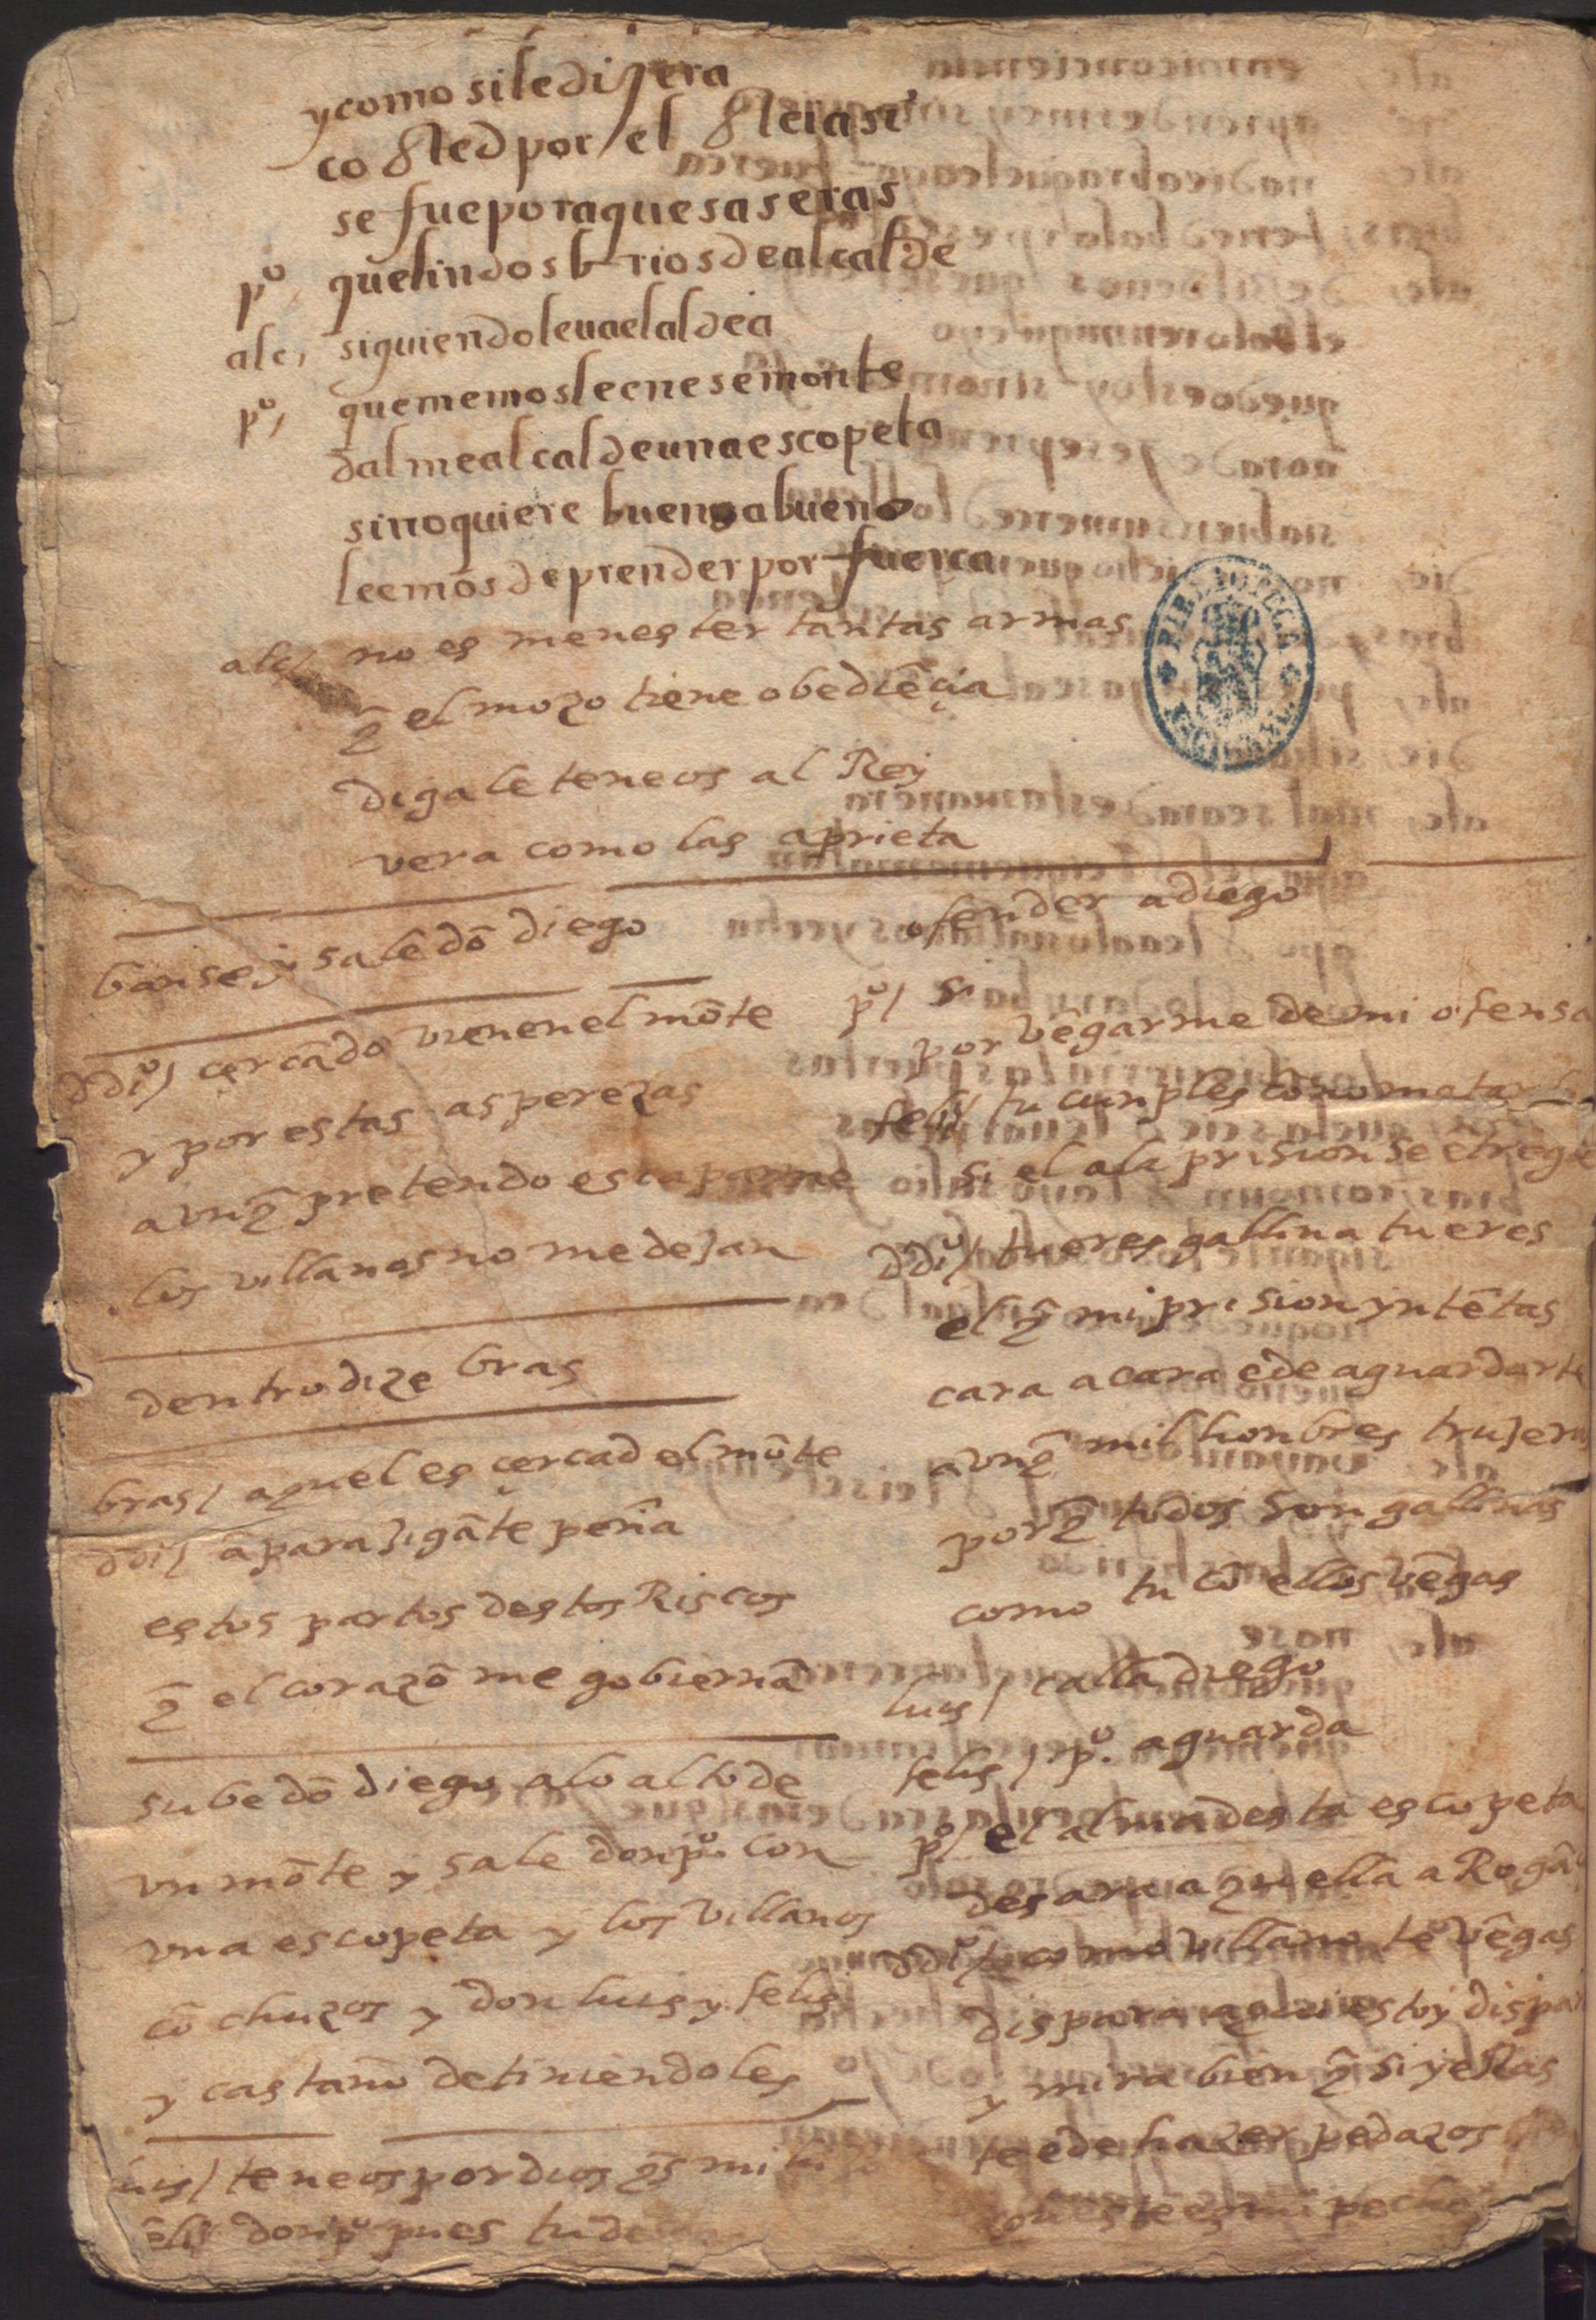 y como si le dijera
co usted por el
se fue por aquesas eras
pº, que lindos brios de alcalde
alc, siguiendo le va el aldea
pº, quememosle en ese monte
dalme alcalde una escopeta
si no quiere bueno a bueno
le emos de prender por fuerça
alc/ no es menester tantas armas
q̃ el mozo tiene obediẽçia
digale teneos al Rey
vera como las aprieta
banse y salẽ dõ diego
ddiº/ cercãdo vienen el mõte
y por estas asperezas
avnq̃ pretendo escaparme
los villanos no me dejan
dentro dize bras
bras/ aquel es çercad el mõte
ddi/ apara jigãte peña
estos partos destos Riscos
q̃ el corazõ me gobierna
sube dõ diego a lo alto de
vn mõte y sale don pº con
vna escopeta y los villanos
cõ chuzos y don luis y felis
y castaño detiniendoles
luis/ teneos por dios q̃s mi
felis don pº pues tu
ofender a diego
pº/ si
por vẽgarme de mi ofensa
felis/ tu cunples cõ
si el a la prision se ẽtrega
ddiº/ tu eres gallina tu eres
el q̃ mi prision yntẽtas
cara a cara e de aguardarte
avnq̃ mil honbres trujera
porq̃ todos son gallinas
como tu cõ ellos vẽgas
luis/ calla diego
felis/ pº. aguarda
pº/ el alma desta escopeta
desara aquella a
ddiº/ como villano te vẽgas
dispara aqui estoy
y mira bien q̃ si yerras
te e de hazer pedazos
este es mi pecho
BIBLIOTECA